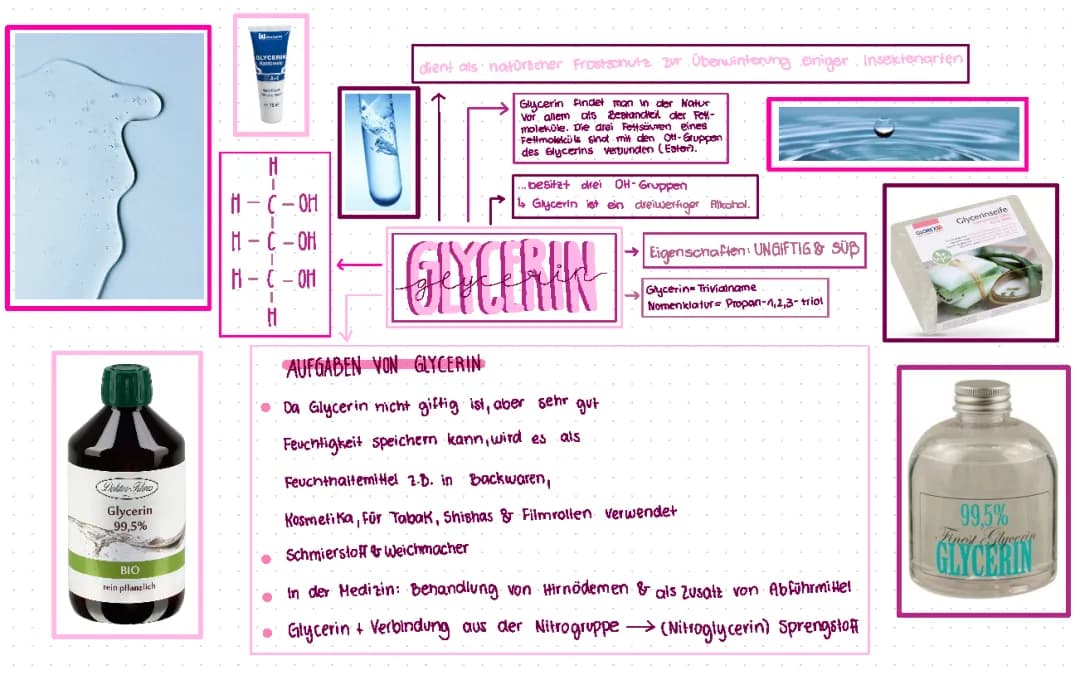 GLYCERIN
dient als natürlicher Frostschutz zur Überwinterung einiger Insektenarten
Glycerin findet man in der Natur
vor allem als Bestandteil der Fett-
moleküle. Die drei Fettsäuren eines
Fettmoleküls sind mit den OH-Gruppen
des Glycerins verbunden (Ester).
...besitzt drei OH-Gruppen
↳ Glycerin ist ein dreiwertiger Alkohol.
H
H – C – OH
H – C – OH
H – C – OH
H
GLYCERIN
glycerin
Eigenschaften: UNGIFTIG & SÜß
Glycerin= Trivialname
Nomenklatur= Propan-1,2,3-triol
Glycerinseife
AUFGABEN VON GLYCERIN
Da Glycerin nicht giftig ist, aber sehr gut
Feuchtigkeit speichern kann, wird es als
Feuchthaltemittel z.B. in Backwaren,
Kosmetika, für Tabak, Shishas & Filmrollen verwendet
Schmierstoff & Weichmacher
In der Medizin: Behandlung von Hirnödemen & als Zusatz von Abführmittel
Glycerin + Verbindung aus der Nitrogruppe → (Nitroglycerin) Sprengstoff
Glycerin
99,5%
BIO
rein pflanzlich
99,5%
Finest Glycerin
GLYCERIN